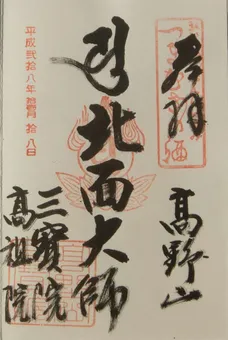 奉拝
高野山
北面大師
三寳院
高祖院
平成弐拾八年
拾八日